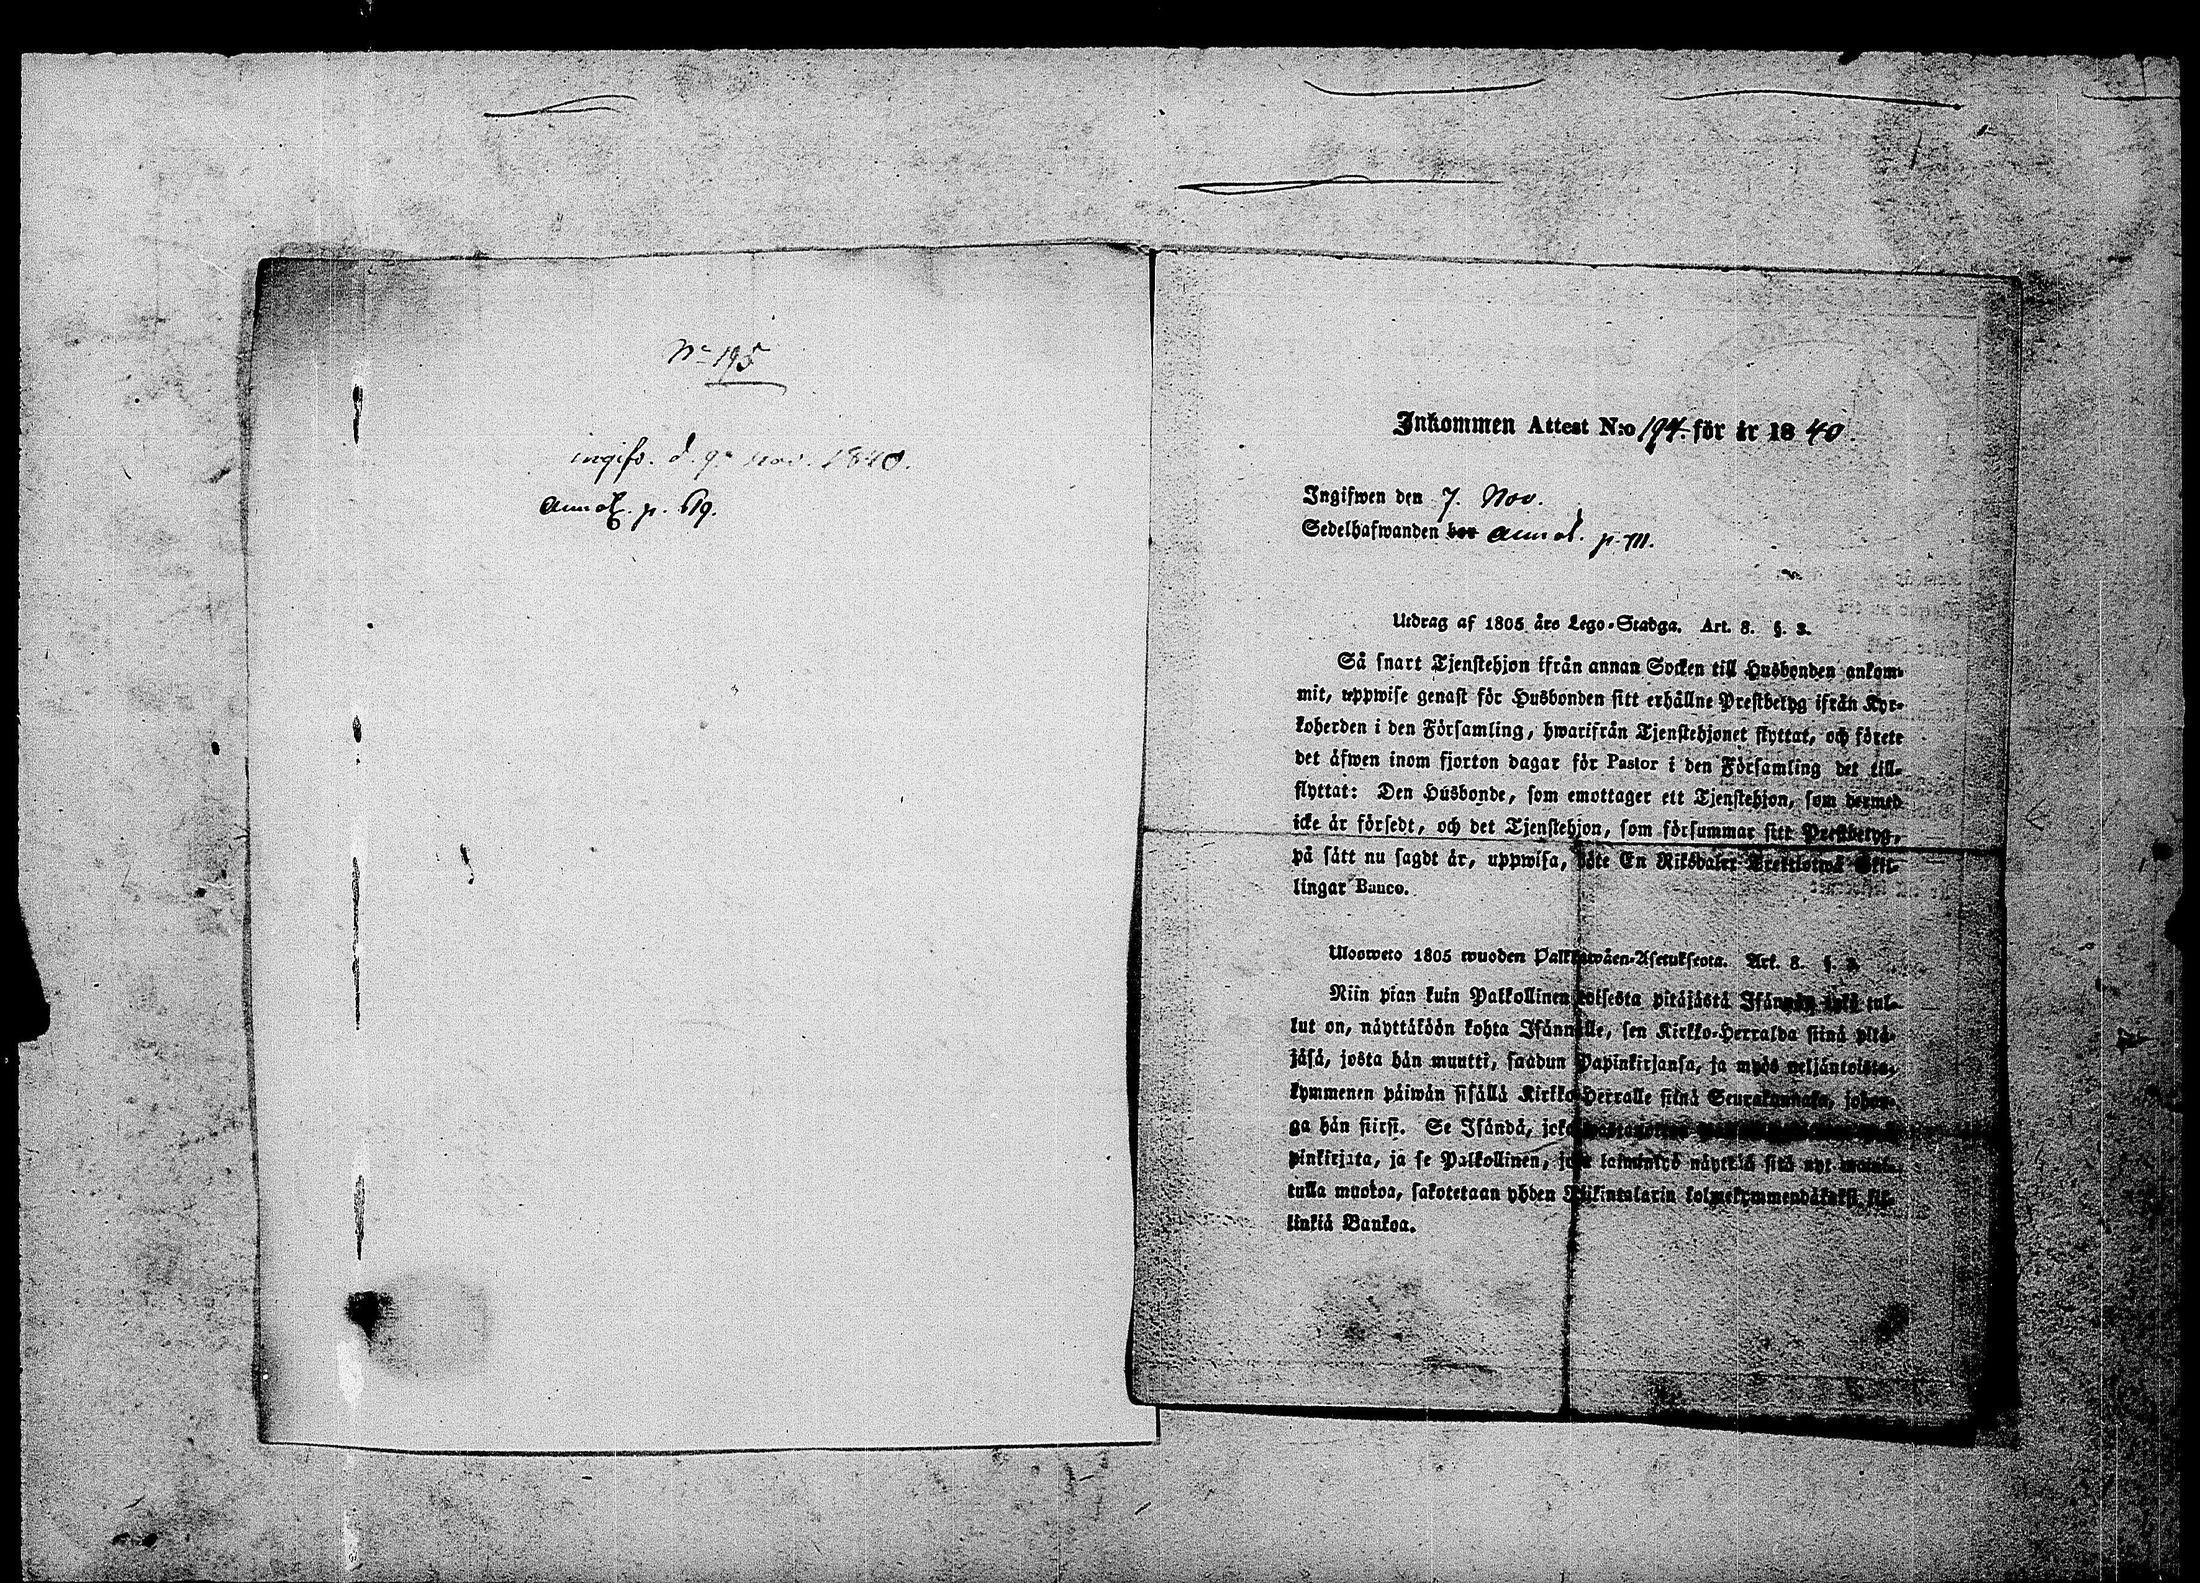 No 195
ingifv. d. 9 Nov. 1840.
Annot. p. 619.
Inkommen Attest N:o 194. för år 1840.
Ingifwen den 7. Nov.
Sedelhafwanden bor Annot. p. 711.
Utdrag af 1805 års Lego-Stadga. Art. 8. §. 3.
Så snart Tjenstehjon ifrån annan Socken till Husbonden ankom-
mit, uppwise genast för Husbonden sitt erhållne Prestbetyg ifrån Kyr-
koherden i den Församling, hwarifrån Tjenstehjonet flyttat, och förete
det äfwen inom fjorton dagar för Pastor i den Församling det till-
flyttat: Den Husbonde, som emottager ett Tjenstehjon, som dermed
icke är försedt, och det Tjenstehjon, som försummar sitt Prestbetyg,
på sätt nu sagdt är, uppwisa, böte En Riksdaler Trettiotwå Skil-
lingar Banco.
Ulosweto 1805 wuoden Palkkawäen-Asetuksesta. Art. 8. §. 3.
Niin pian kuin Palkollinen toisesta pitäjästä Isännän tykö tul-
lut on, näyttäköön kohta Isännälle, sen Kirkko-Herralda siinä pitä-
jäsä, josta hän muutti, saadun Papinkirjansa, ja myös neljäntoista-
kymmenen päiwän sisällä Kirkko-Herralle siinä Seurakunnasa, johon-
ga hän siirsi. Se Isändä, joka
pinkirjata, ja se Palkollinen, joka laiminlyö näyttää sitä nyt maini-
tulla muotoa, sakotetaan yhden Riikintalarin kolmekymmendäkaksi kil-
linkiä Bankoa.